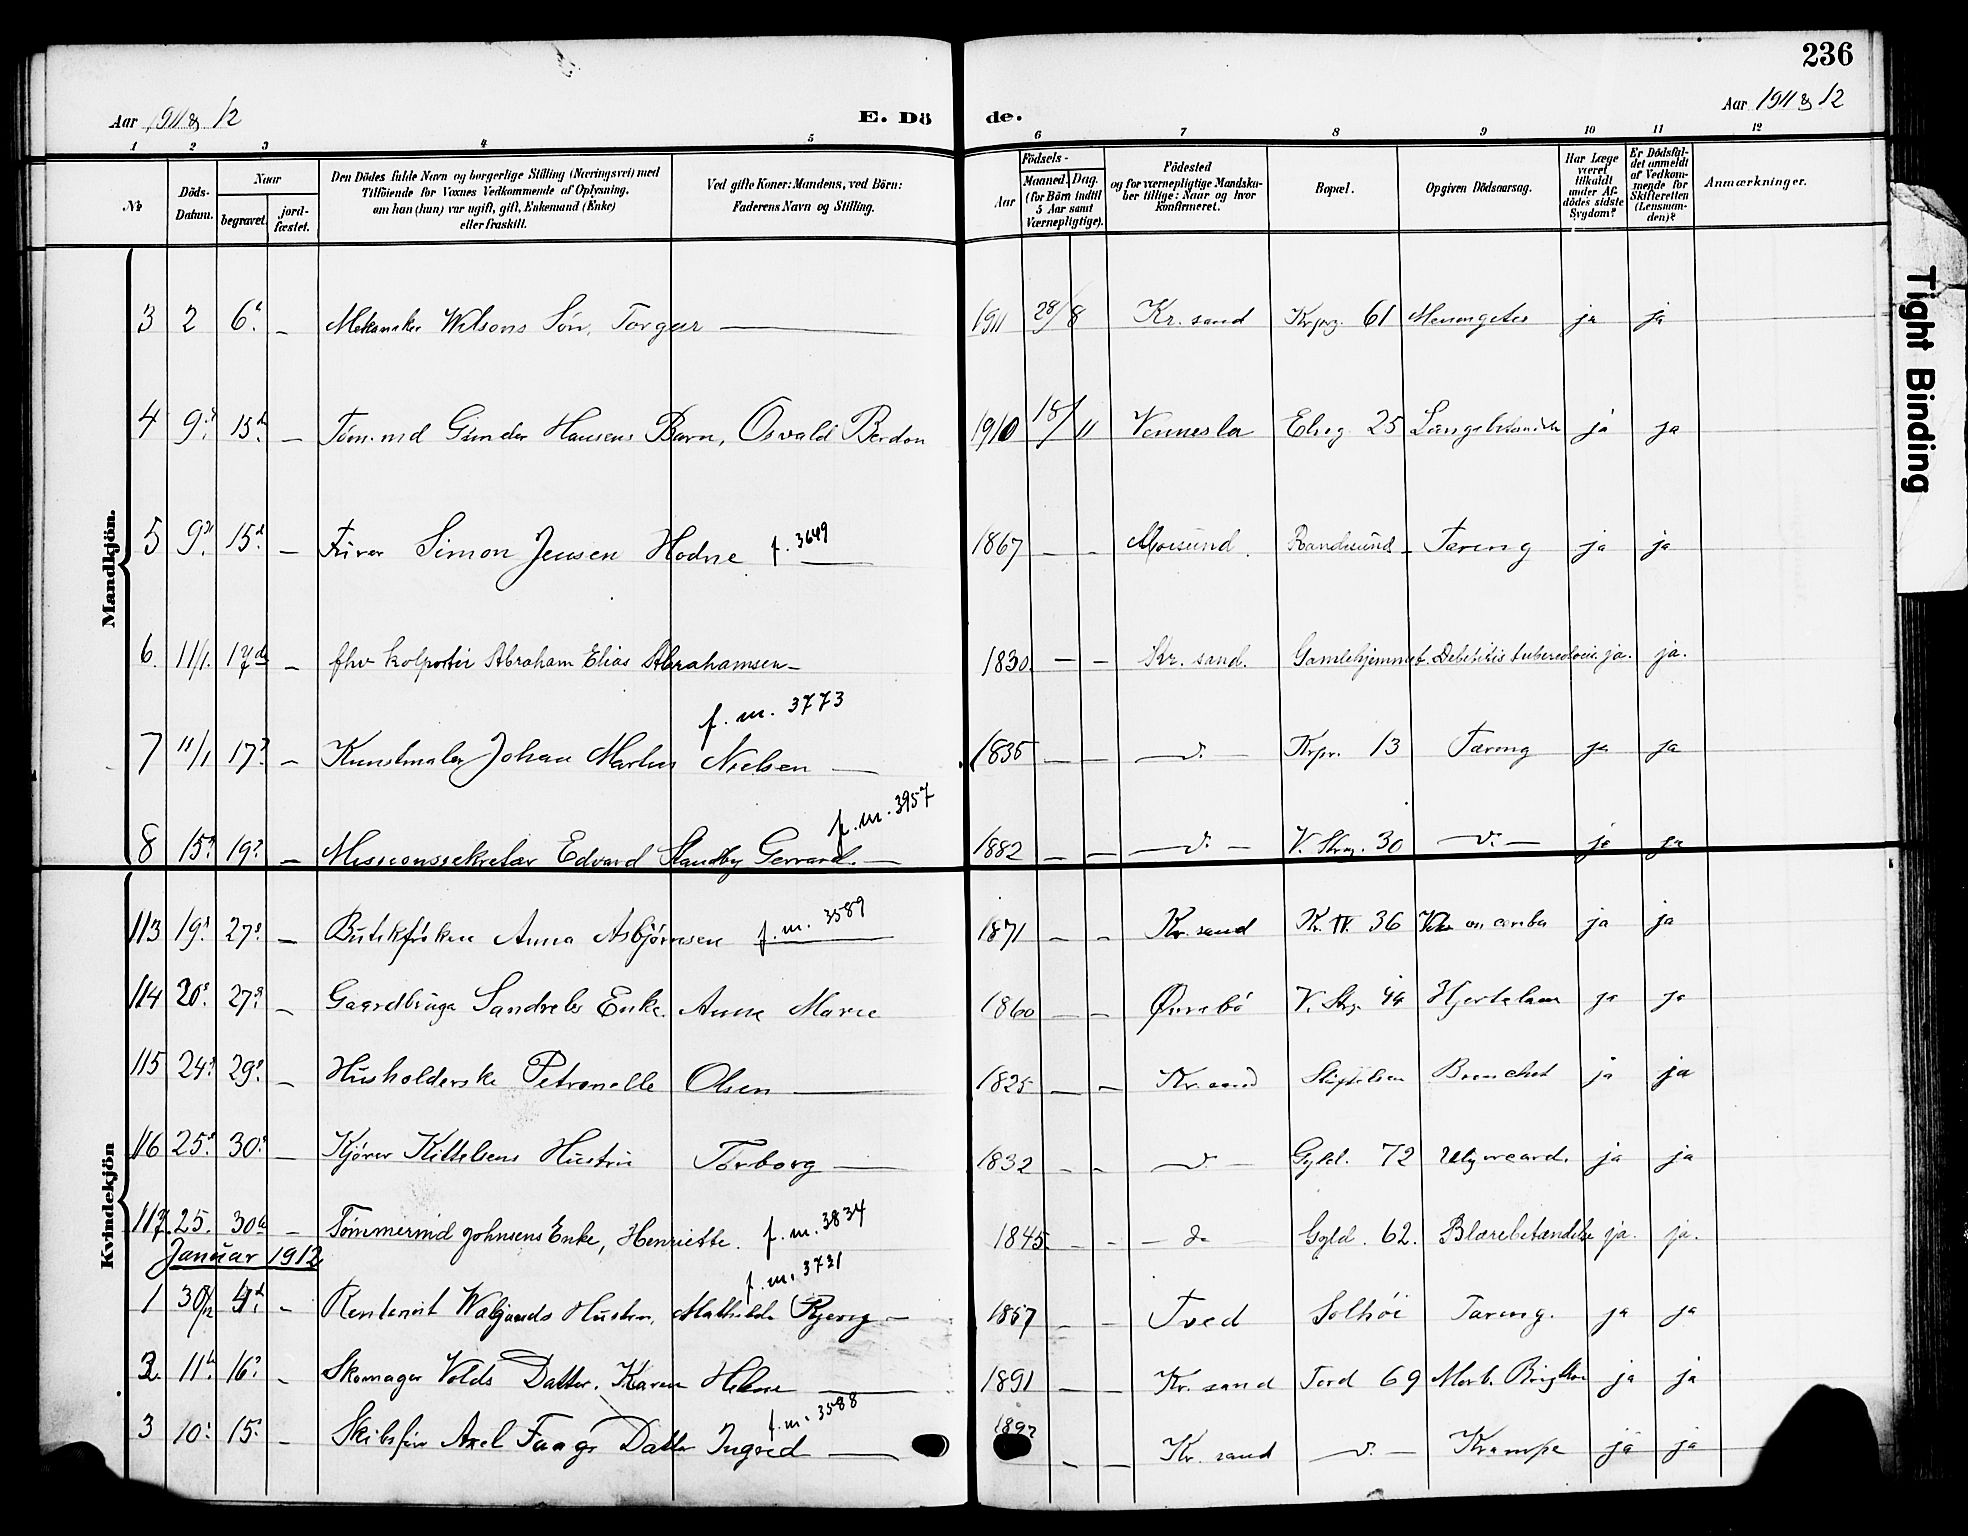 236
Aar 1911 & 12
E. Dö de.
Aar 1911 & 12
1 2 3 4 5 6 7 8 9 10 11 12
№
Döds-Datum.
Naar
begravet.
jord-fæstet.
Den Dödes fulde Navn og borgerlige Stilling (Næringsvei) med
Tilföiende for Voxnes Vedkommende af Oplysning,
om han (hun) var ugift, gift, Enkemand (Enke)
eller fraskilt.
Ved gifte Koner: Mandens, ved Börn:
Faderens Navn og Stilling.
Födsels-
Aar
Maaned. Dag.
(for Börn indtil
5 Aar samt
Værnepligtige).
Födested
og for værnepligtige Mandska-
ber tillige: Naar og hvor
konfirmeret.
Bopæl.
Opgiven Dödsaarsag.
Har Læge
været
tilkaldt
under Af-
dödes sidste
Sygdom?
Er Dödsfal-
det anmeldt
af Vedkom-
mende for
Skifteretten
(Lensman-
den)?
Anmærkninger.
Tight Binding
Mandkjön.
3 2 6. – Mekaniker Wilsons Sön, Torgeir — 1911 28/8 Kr. sand Krprg. 61 ja ja
4 9. 15. – Töm.md Gunder Hansens Barn, Osvald Berdon 1910 18/11 Vennesla Elveg. 25 ja ja
5 9. 15. – Simon Jensen Hodne f. 3649 — 1867 – – Randesund – Tæring ja ja
6. 11/1. 17 – fhv kolportör Abraham Elias Abrahamsen – 1830 – – Kr. sand. Gamlehjemmet. Debilitis tuberculosis ja. ja.
f. m. 3773
7 11/1 17. – Kunstmaler Johan Martin Nielsen — 1835 – – — d. — Krpr. 13 Tæring ja ja
f. m. 3957
8 15. 19. – Missionssekretær Edvard Standby Gerrard. — 1882 – – — d. — V. Strg. 30 — d. — ja ja
Kvindekjön
113 19. 27. – Butikfröken Anna Asbjörnsen f. m. 3589 1871 – – Kr. sand 36 ja ja
114 20. 27. – Gaardbruger Enke. Anne Marie 1860 – – Övrebö V. Strg. ja ja
115 24. 29. – Husholderske Petronelle Olsen — 1825 – – Kr. sand Bronchit ja ja
116 25. 30. – Kjörer Kittelsens Hustru Torborg — 1832 – – — d — Gyld. 72 ja ja
117. 25. 30 – Tömmermd Johnsens Enke, Henriette. f. m. 3834 1845. – – – d – Gyld. 62. Blærebetændelse ja. ja.
Januar 1912
f. m. 3731
1 30/12 4. – Hustru, Mathilde – 1857 – – Tved Solhöi Tæring. ja ja
2 11. 16. – Skomager Volds Datter. Karen Helene — 1891 – – Kr. sand Tord 69 Morb. ja ja
f. m. 3588
3 10. 15. – Skibsför Axel Datter Ingrid — – – Kr. sand — d. — Krampe ja ja